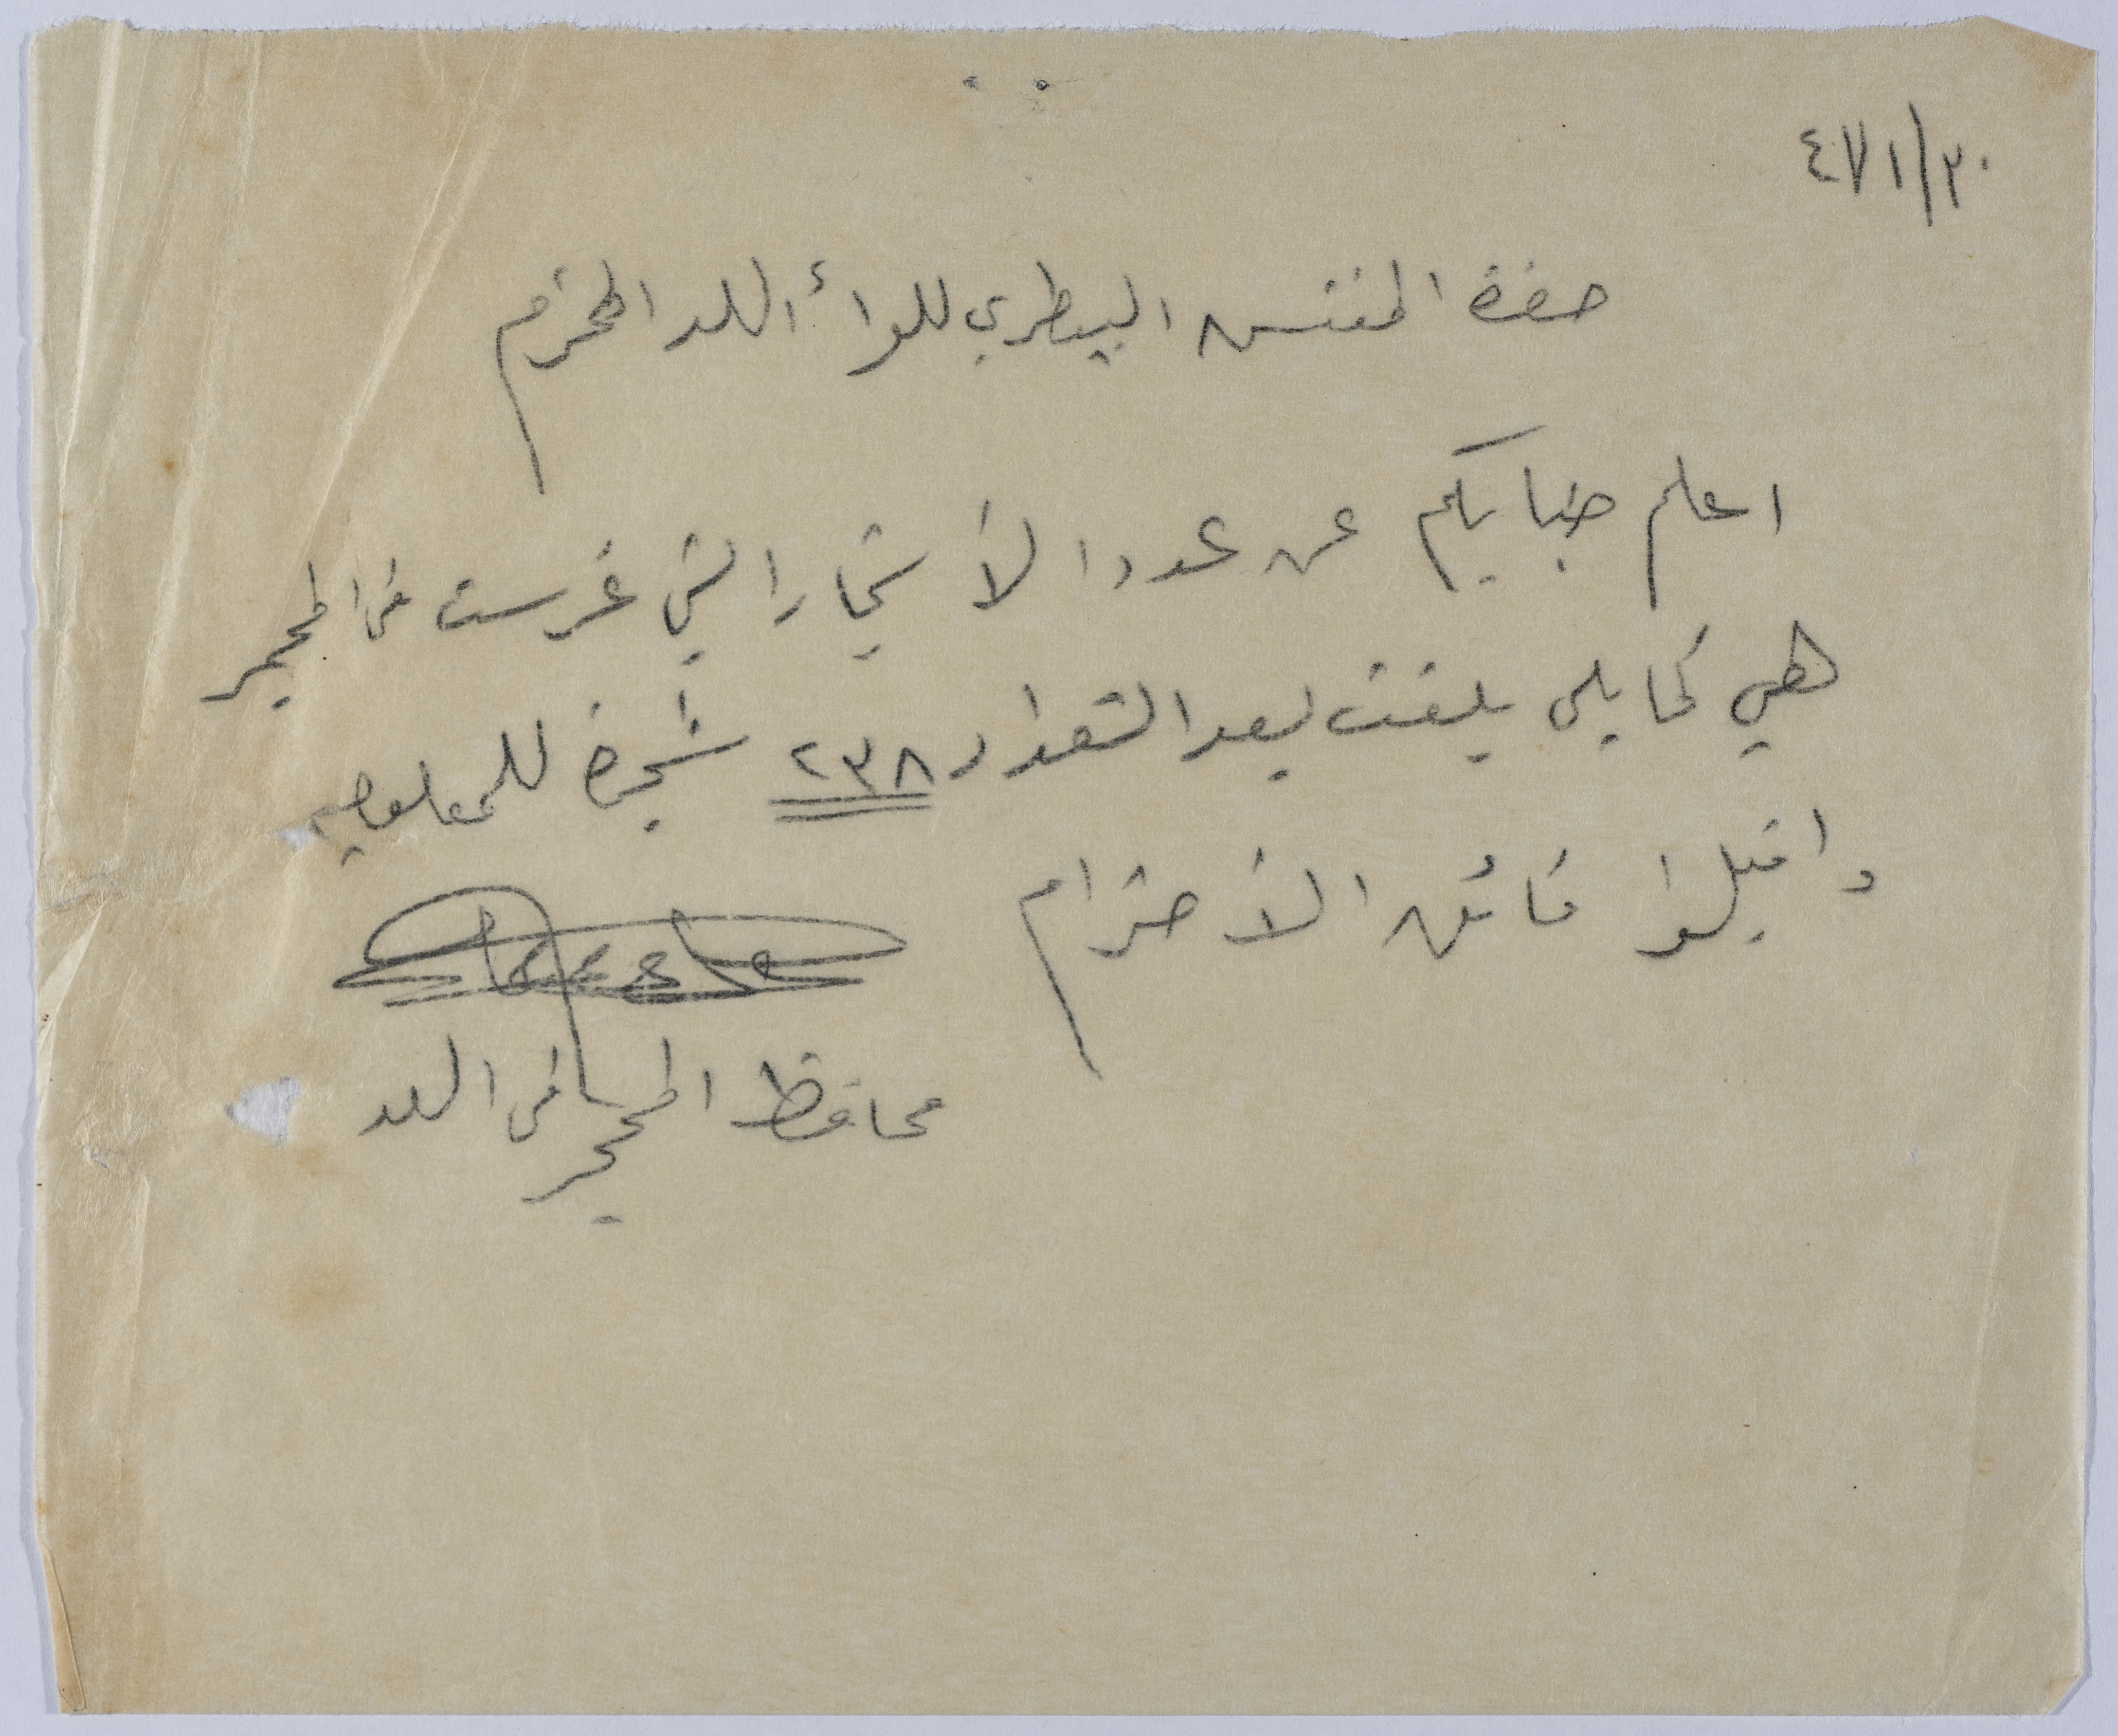 ٤٧/١/٣٠
حضرة المفتش البيطري للواء اللد المحترم
اعلم جنابكم عن عدد الأشجار التي غرست في المحجر
هي كما يلي بلغت بعد التعداد ٢٣٨ شجرة للمعلوميه
واقبلوا فائق الأحترام
محافظ المحجر في اللد